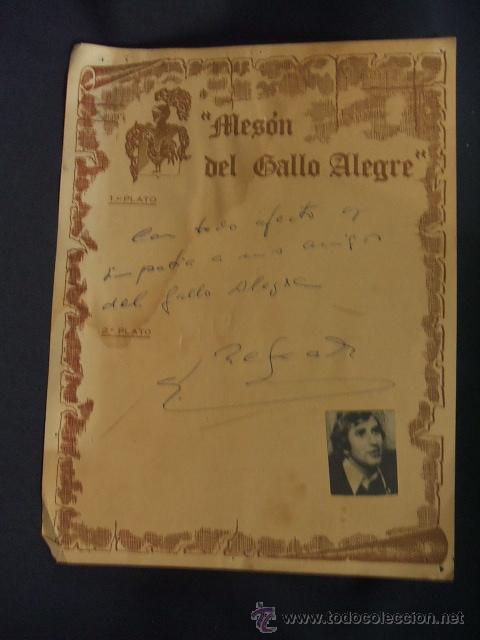 "Mesón
del Gallo Alegre"
1.er PLATO
Con todo afecto y
simpatia a mis amigos
del Gallo Alegre
2.º PLATO
© todocoleccion
www.todocoleccion.net